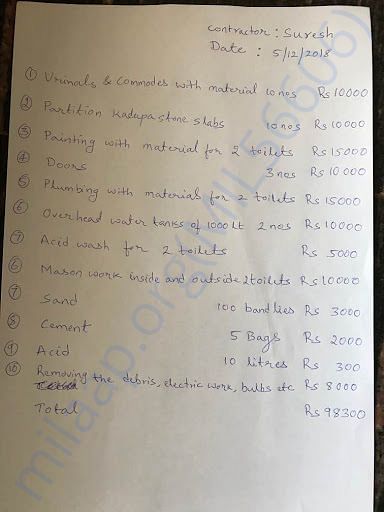 Contractor : Suresh
Date : 5/12/2018
① Urinals & Commodes with material 10 nos Rs 10000
② Partition Kadapa stone slabs 10 nos Rs 10000
③ Painting with material for 2 toilets Rs 15000
④ Doors 3 nos Rs 10000
⑤ Plumbing with material for 2 toilets Rs 15000
⑥ Overhead water tanks of 1000 lt 2 nos Rs 10000
⑦ Acid wash for 2 toilets Rs 5000
⑥ Mason work inside and outside 2 toilets Rs 10000
⑦ Sand 100 bandlies Rs 3000
⑧ Cement 5 Bags Rs 2000
⑨ Acid 10 litres Rs 300
⑩ Removing the debris, electric work, bulbs etc Rs 8000
Total Rs 98300
milaap.org